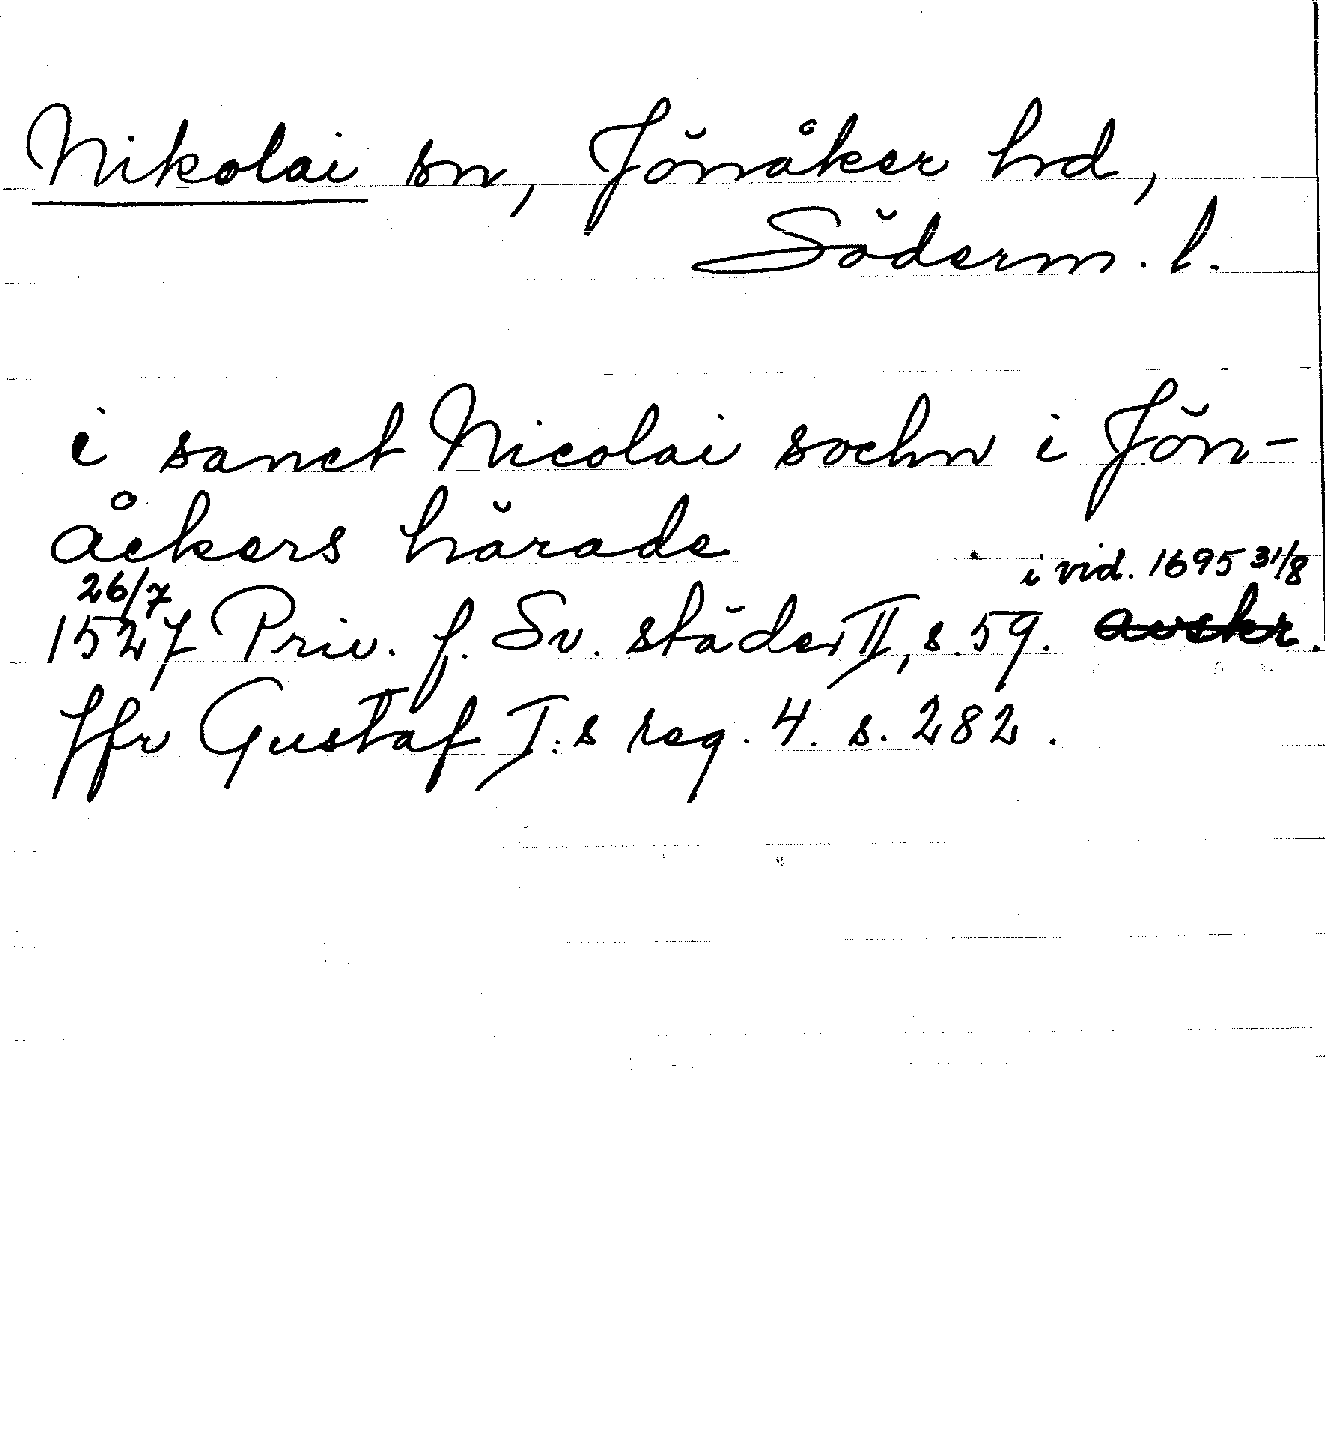 Nikolai sn, Jönåker hd,
Söderm. l.
i sanct Nicolai sochn i Jön-
åckers härade
26/7 i vid. 1695 31/8
1527 Priv. f. Sv. städer II, s. 59. avskr.
Jfr Gustaf I:s reg. 4. s. 282.